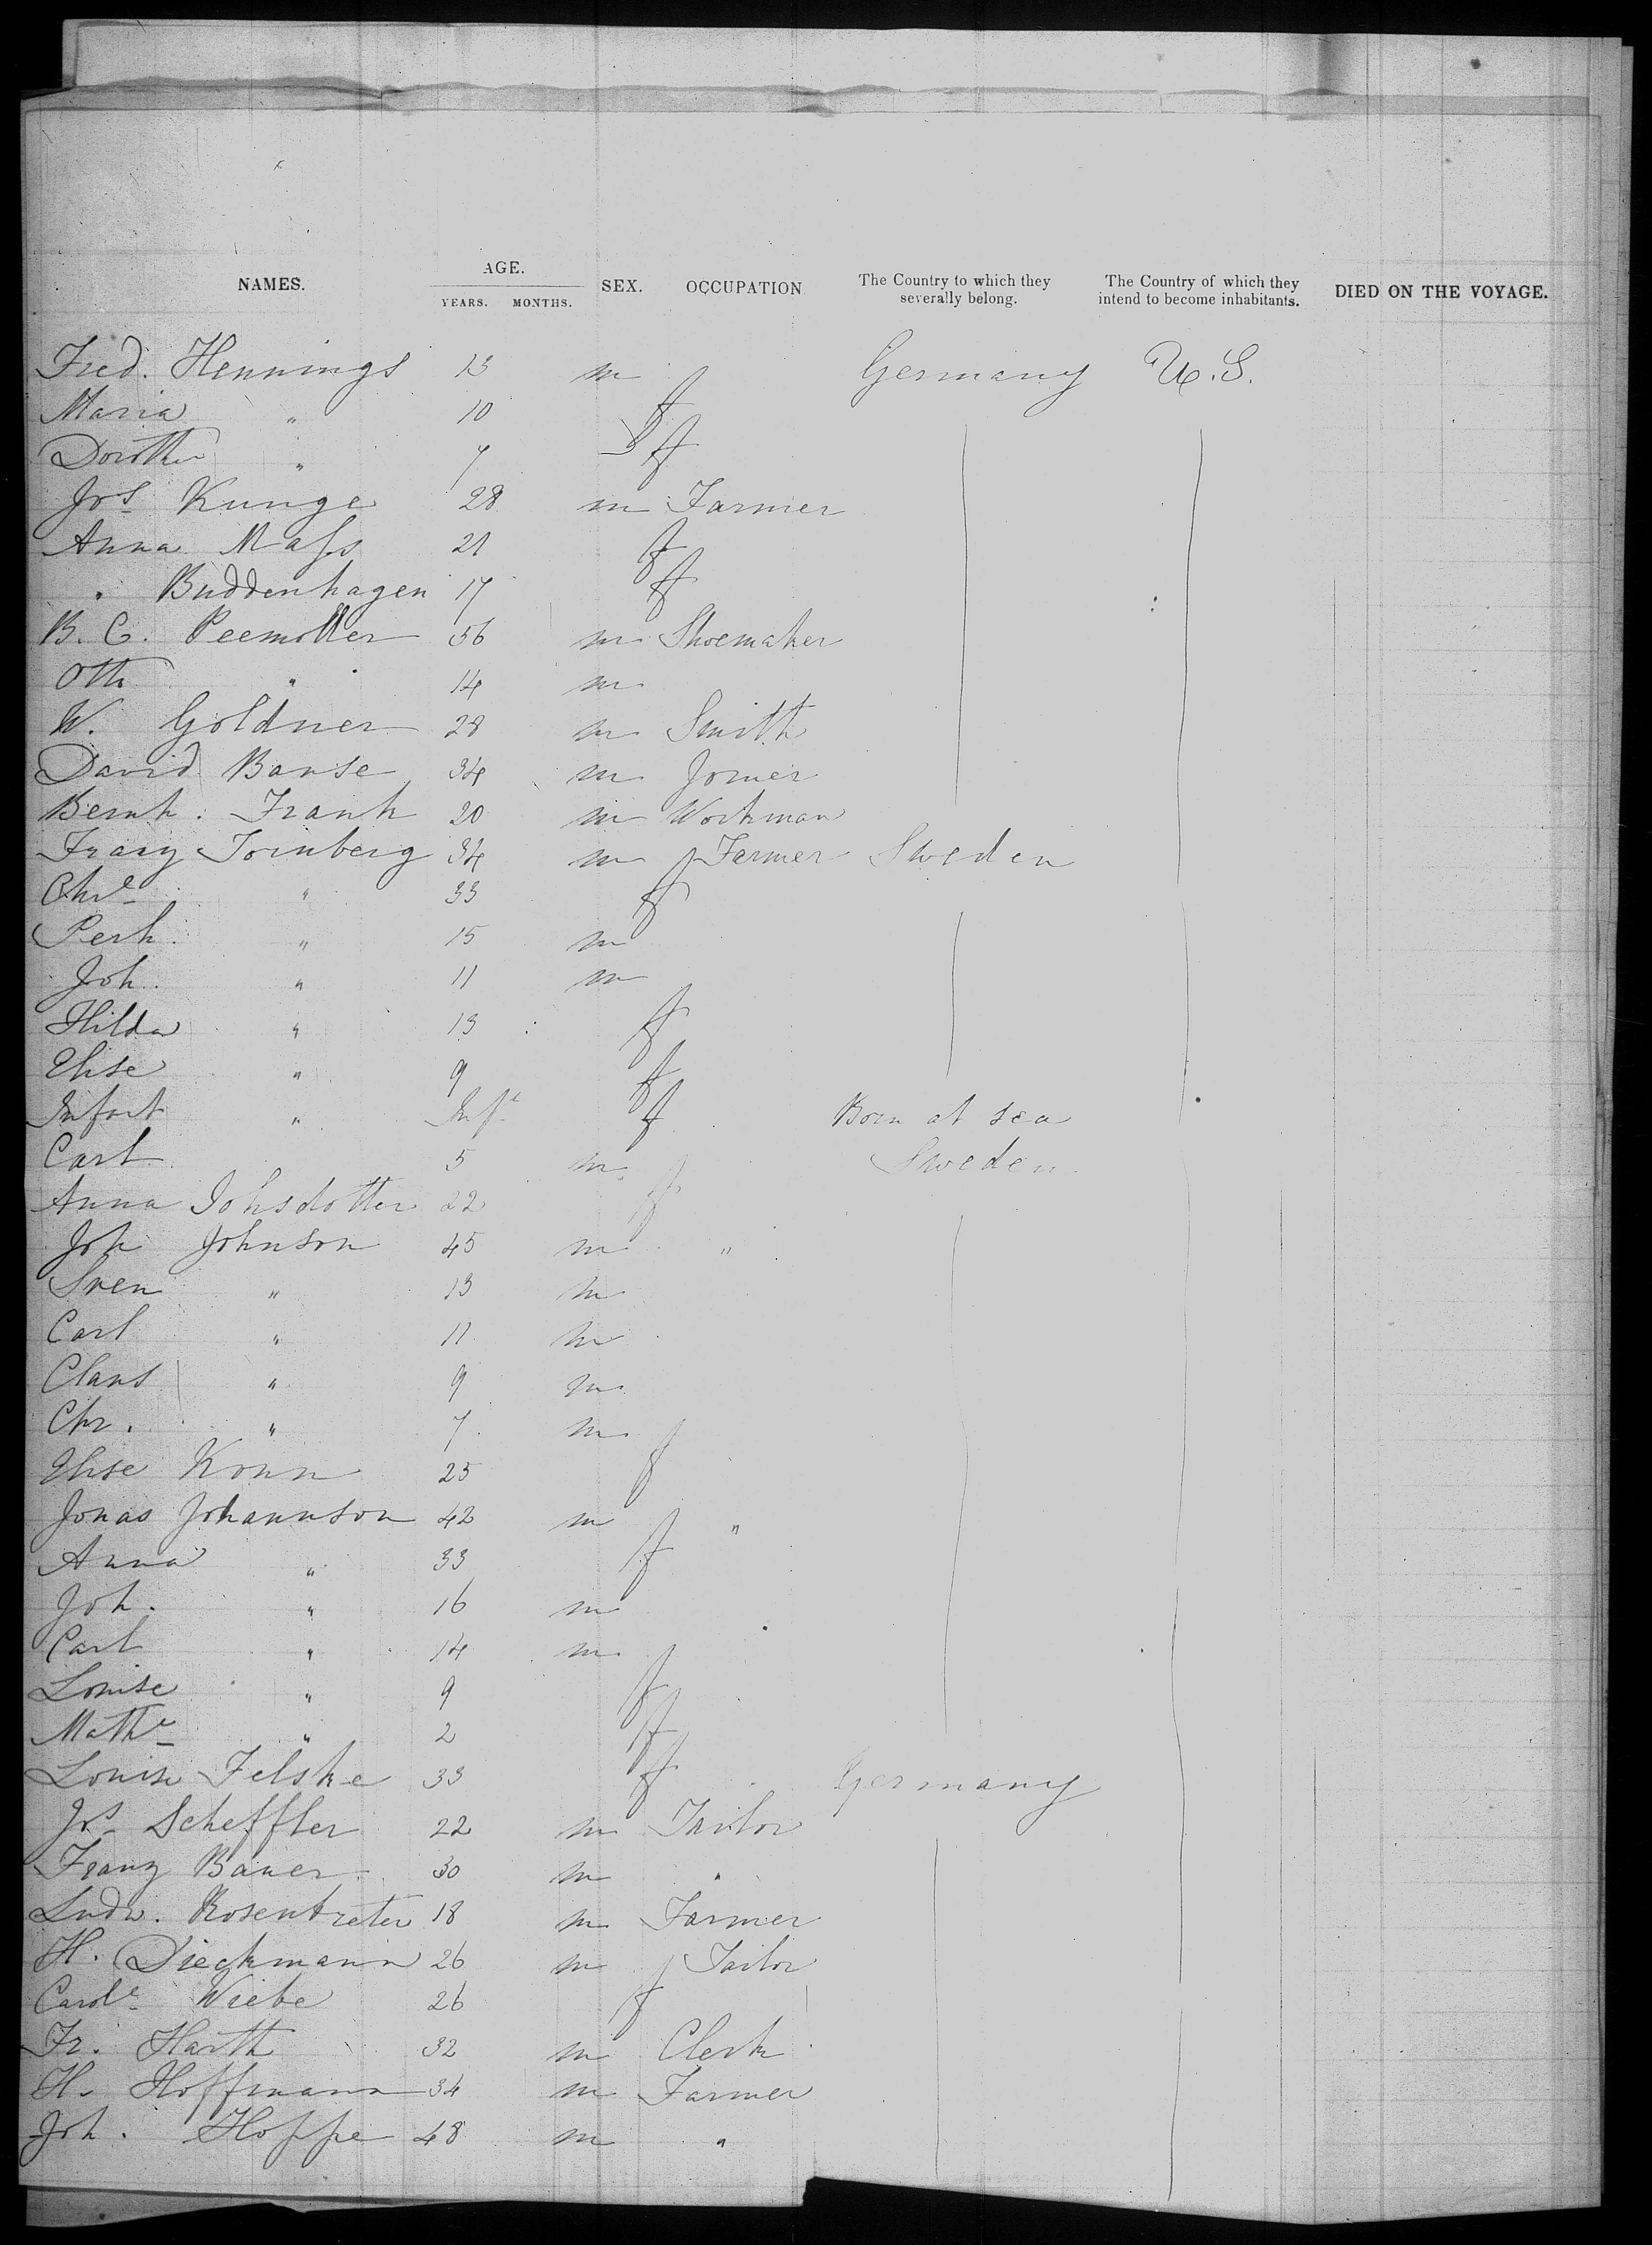 NAMES. AGE. YEARS. MONTHS. SEX. OCCUPATION The Country to which they severally belong. The Country of which they intend to become inhabitants. DIED ON THE VOYAGE.
Fred. Hennings 13 m Germany U.S.
Maria " 10 f
Dorothe " 7 f
Jos Kunge 28 m Farmer
Anna Mass 21 f
" Buddenhagen 17 f
B. C. Peemöller 56 m Shoemaker
Otto " 14 m
W. Goldner 28 m Smith
David Banse 34 m Joiner
Bernh. Frank 20 m Workman
Franz Tornberg 34 m Farmer Sweden
Chre " 33 f
Perh. " 15 m
Joh. " 11 m
Hilda " 13 f
Elise " 9 f
Infant " Inft f Born at sea
Carl 5 m Sweden
Anna Johsdotter 22 f
Joh Johnson 45 m "
Sven " 13 m
Carl " 11 m
Claus " 9 m
Chr. " 7 m
Elise Konn 25 f
Jonas Johannson 42 m "
Anna " 33 f
Joh. " 16 m
Carl " 14 m
Louise " 9 f
Mathe " 2 f
Louise Felske 33 f Germany
Jos Scheffler 22 m Tailor
Franz Bauer 30 m "
Ludw. Rosentreter 18 m Farmer
H. Dieckmann 26 m Tailor
Carole Wiebe 26 f
Fr. Harth 32 m Clerk
H. Hoffmann 34 m Farmer
Joh. Hoppe 48 m "